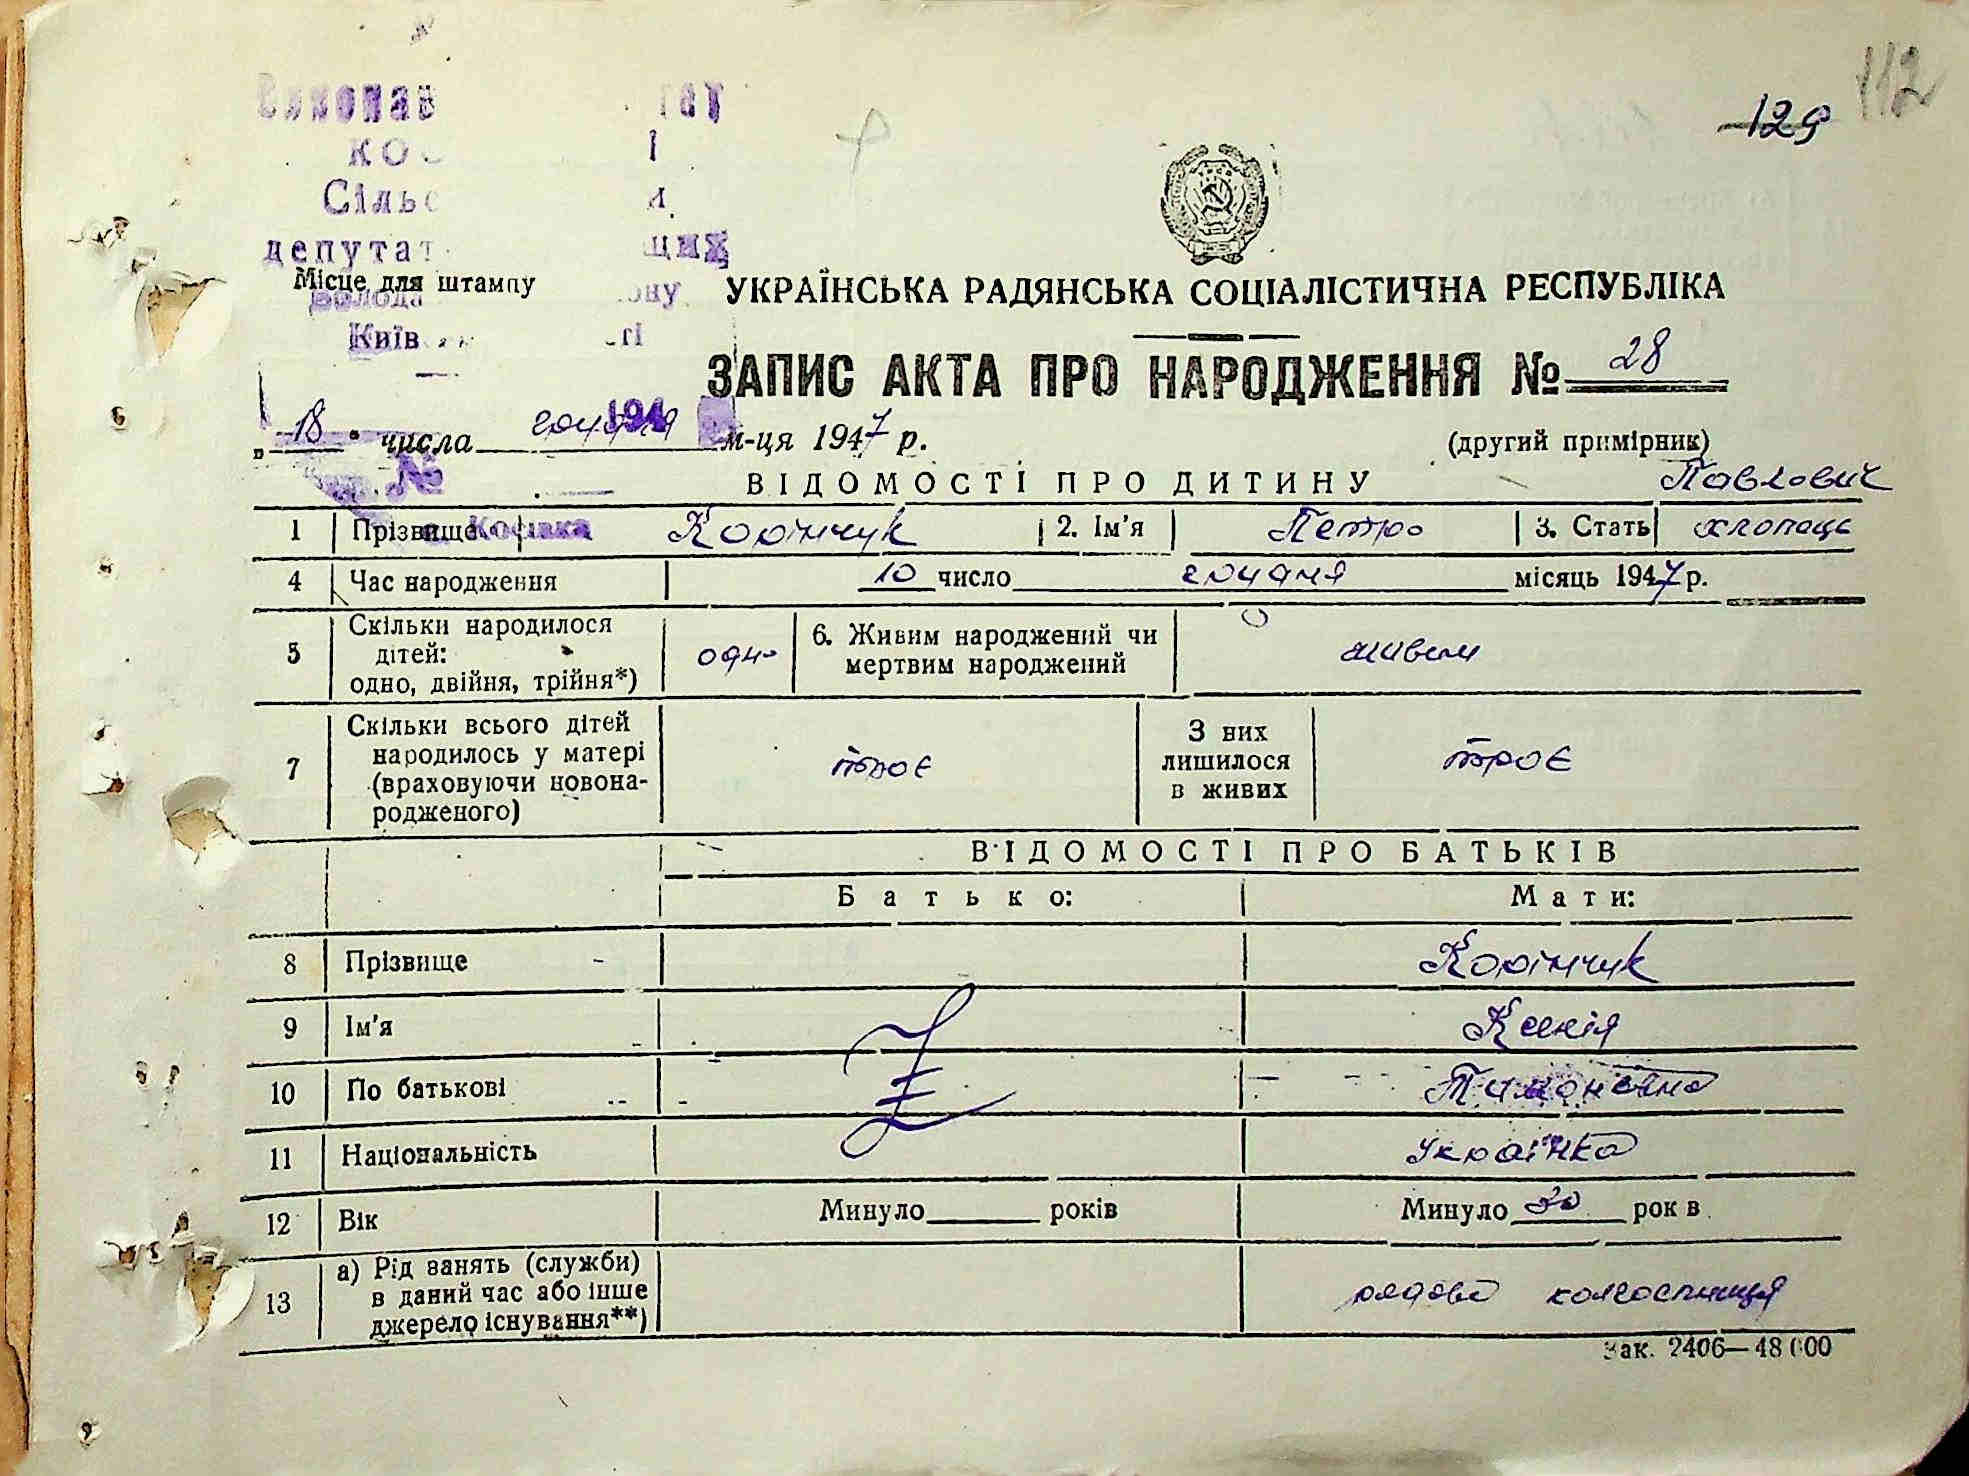 112
129
Сільс
депутат щих
Місце для штампу
Київ
УКРАЇНСЬКА РАДЯНСЬКА СОЦІАЛІСТИЧНА РЕСПУБЛІКА
ЗАПИС АКТА ПРО НАРОДЖЕННЯ № 28
„ 18 " числа грудня м-ця 1947 р.
(другий примірник)
№
ВІДОМОСТІ ПРО ДИТИНУ
Павлович
1 Прізвище Корінчук 2. Ім'я Петро 3. Стать хлопець
с. Косівка
4 Час народження 10 число грудня місяць 1947 р.
5 Скільки народилося
дітей:
одно, двійня, трійня*)
одно
6. Живим народжений чи
мертвим народжений
живим
7 Скільки всього дітей
народилось у матері
(враховуючи новона-
родженого)
троє
З них
лишилося
в живих
троє
ВІДОМОСТІ ПРО БАТЬКІВ
Батько: Мати:
8 Прізвище Корінчук
9 Ім'я Ксенія
10 По батькові Тимонівна
11 Національність Українка
12 Вік Минуло років Минуло 30 рок в
13 а) Рід занять (служби)
в даний час або інше
джерело існування**)
рядова колгоспниця
Зак. 2406—48 000